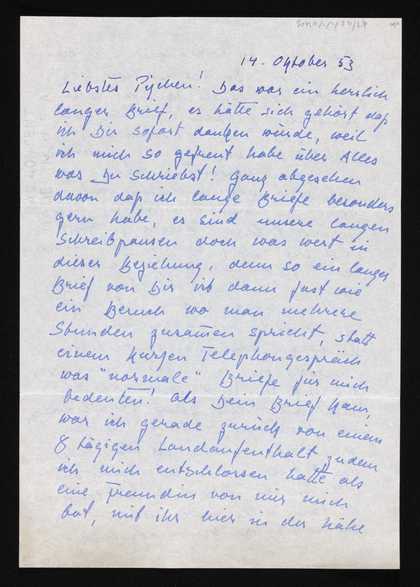 14. Oktober 53
Liebstes Pijchen! Das war ein herrlich
langer Brief, es hätte sich gehört daß
ich Dir sofort danken würde, weil
ich mich so gefreut habe über Alles
was Du schriebst! Ganz abgesehen
davon daß ich lange Briefe besonders
gern habe, es sind unsere langen
Schreibpausen doch was wert in
dieser Beziehung, denn so ein langer
Brief von Dir ist dann fast wie
ein Besuch wo man mehrere
Stunden zusammen spricht, statt
einem kurzen Telephongespräch
was "normale" Briefe für mich
bedeuten! Als Dein Brief kam,
war ich gerade zurück von einem
8 tägigen Landaufenthalt zu dem
ich mich entschlossen hatte als
eine Freundin von mir mich
bat, mit ihr hier in der Nähe